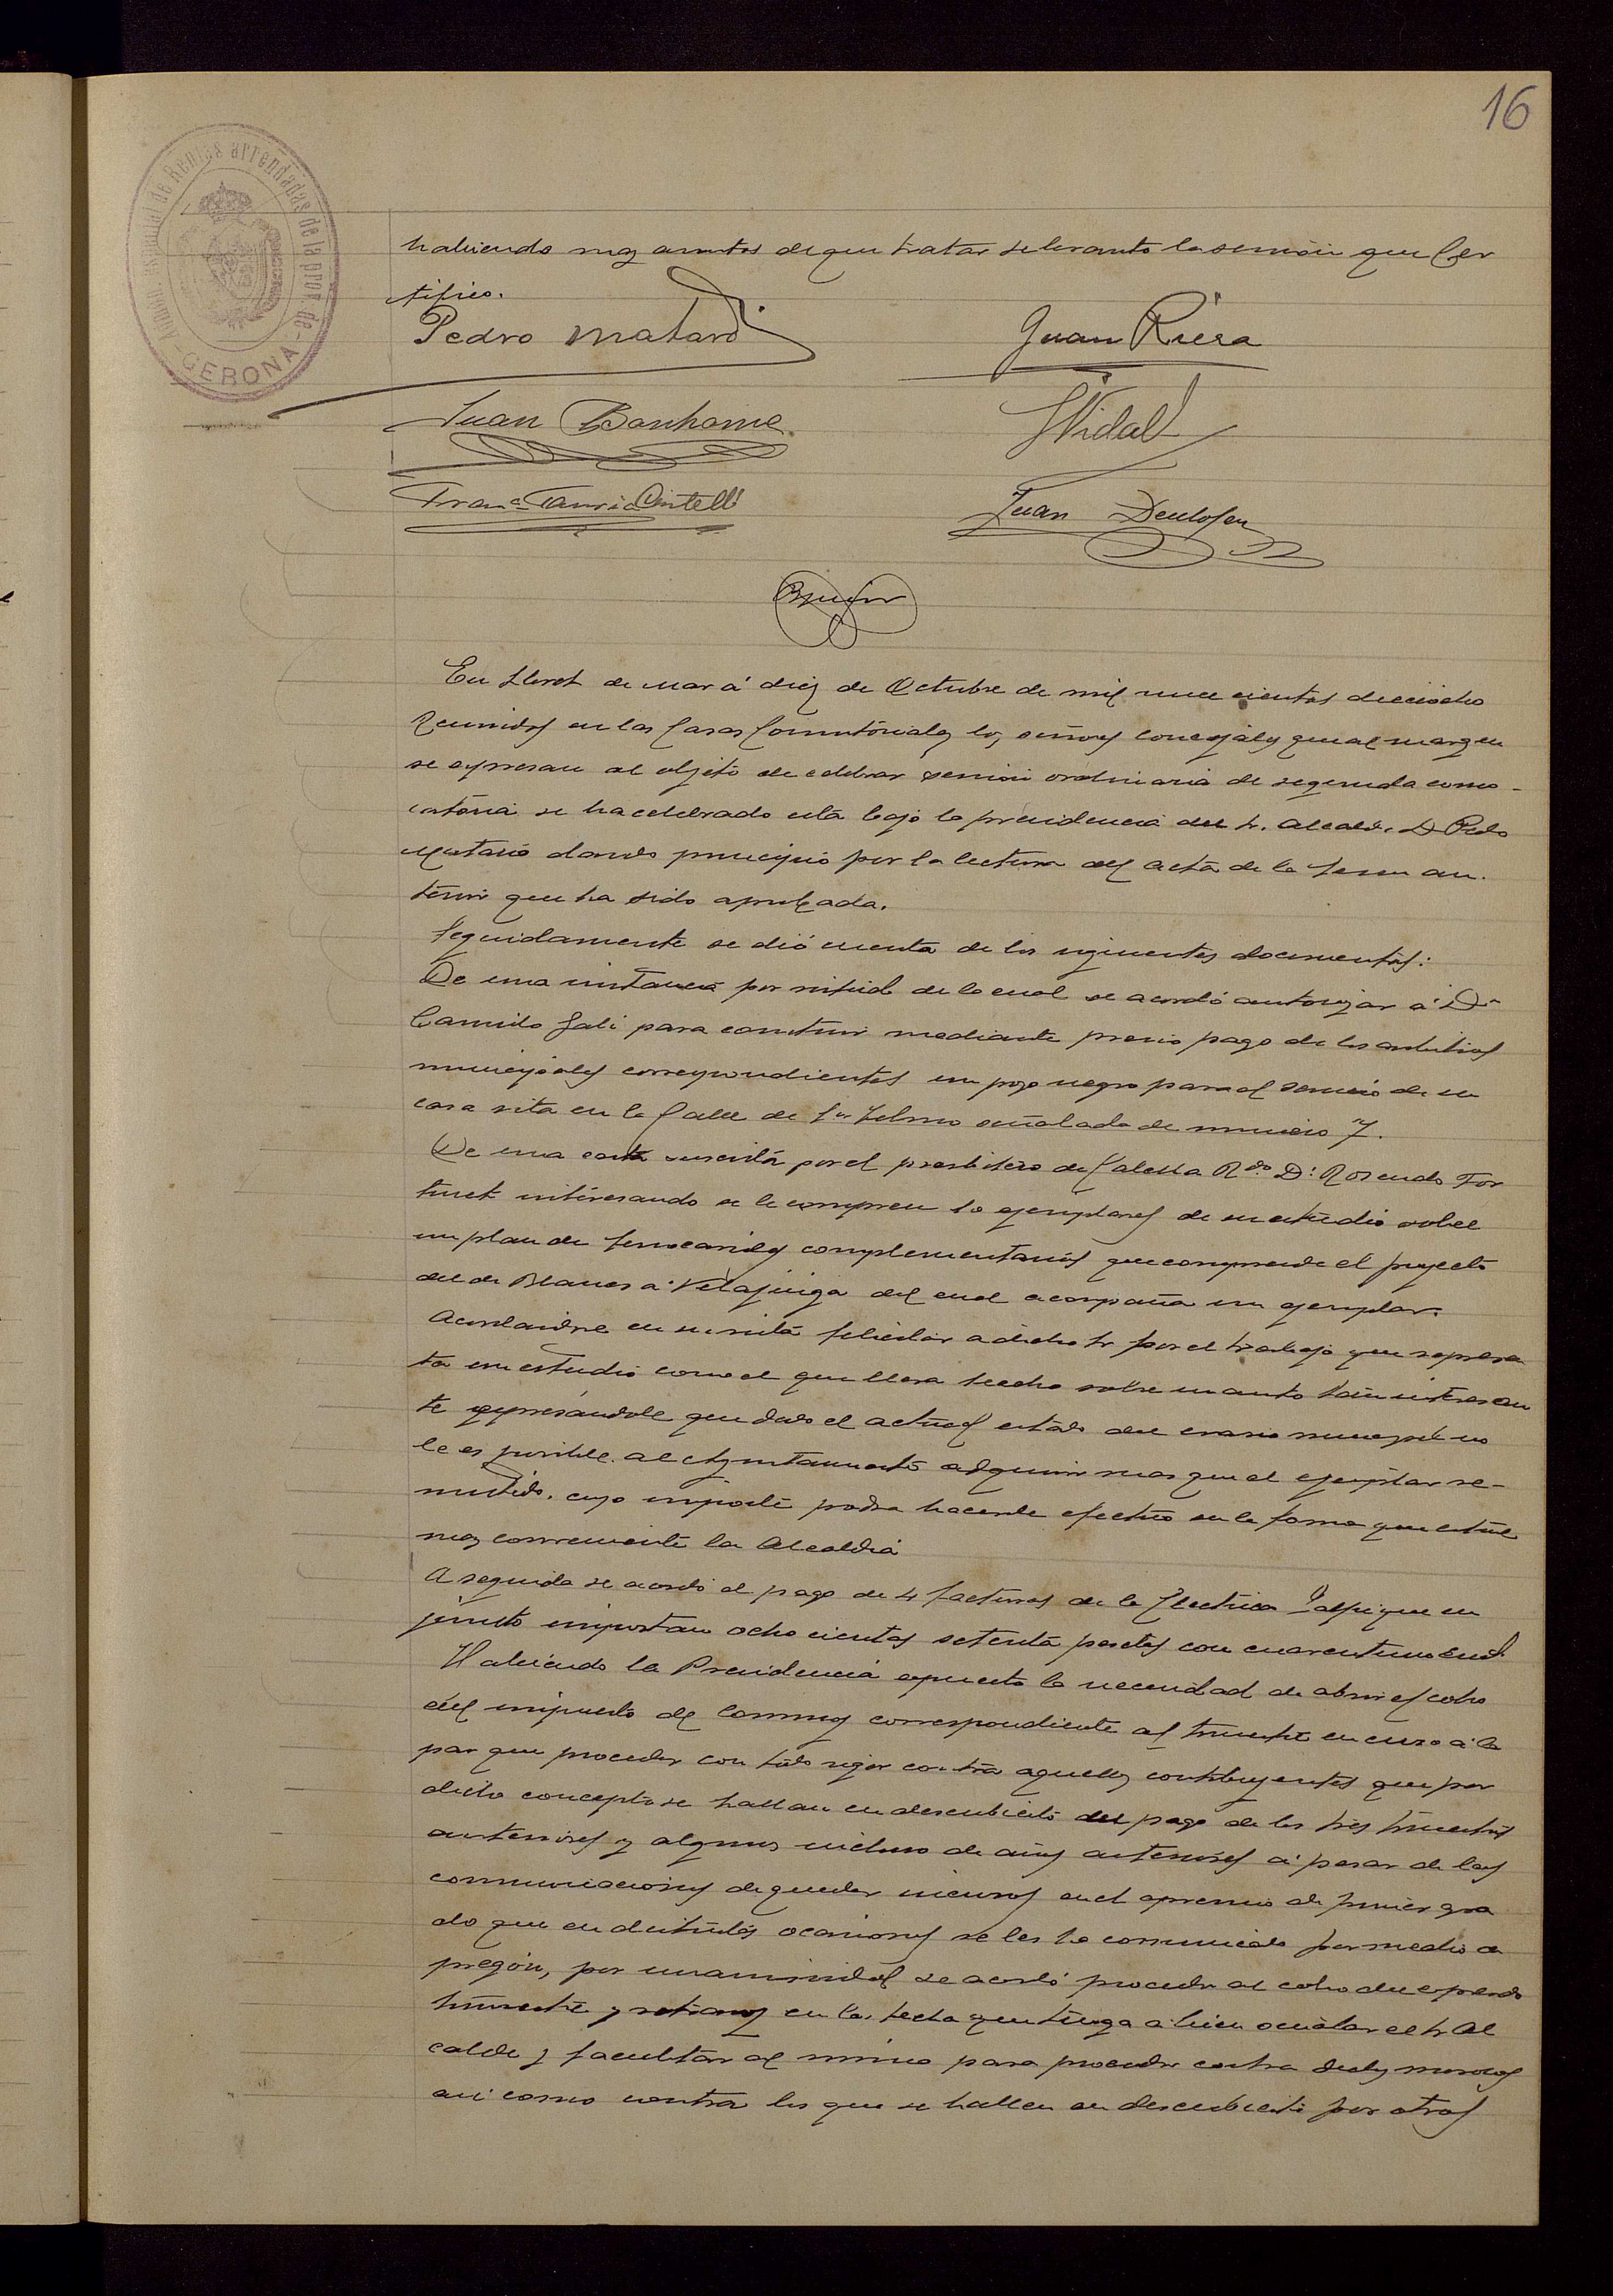 16
Admón. especial de Rentas arrendadas de la prov. de GERONA
habiendo mas asuntos de que tratar se levanto la sesión que Cer
tifico.
Pedro Mataró
Juan Riera
Juan Bonhome
JVidal
Franco. Tauriá Cintell
Juan Deulofeu
En Lloret de mar á diez de Octubre de mil nuecientos dieciocho
Reunidos en las Casas Consistoriales los señores concejales que al margen
se expresan al objeto de celebrar sesion ordinaria de segunda convo-
catoria se ha celebrado esta bajo la presidencia del Sr. Alcalde D Pedro
Mataró dando principio por la lectura del acta de la sesion an-
terior que ha sido aprobada.
Seguidamente se dió cuenta de los siguientes documentos:
De una instancia por virtud de la cual se acordó autorizar á Dn
Camilo Galí para construir mediante previo pago de los arbitrios
municipales correspondientes un pozo negro para el servicio de su
casa sita en la Calle de Sn Telmo señalada de numero 7.
De una carta suscrita por el presbitero de Calella Rdo. D. Rosendo For
tunet interesando se le compren 10 ejemplares de su estudio sobre
un plan de ferrocariles complementarios que comprende el proyecto
del de Blanes a Vilajuiga del cual acompaña un ejemplar.
Acordandose en su vista felicitar a dicho Sr por el trabajo que represen
ta un estudio como el que lleva hecho sobre un asunto tan interesan
te expresándole que dado el actual estado del erario municipal no
le es posible al Ayuntamiento adquirir mas que el ejemplar re-
mitido, cuyo importe podra hacerle efectivo en la forma que estime
mas conveniente la Alcaldia
A seguida se acordó el pago de 4 facturas de la Electrica que en
junto importan ocho cientas setenta pesetas con cuarentiun cent.
Habiendo la Presidencia expuesto la necesidad de abrir el cobro
del impuesto de Consumos correspondiente al trimestre en curso á la
par que proceder con todo rigor contra aquellos contribuyentes que por
dicho concepto se hallan en descubierto del pago de los tres trimestres
anteriores y algunos incluso de años anteriores á pesar de las
comunicaciones de quedar incursos en el apremio de primer gra
do que en distintas ocasiones se les ha comunicado por medio de
pregón, por unanimidad se acordó proceder al cobro del expresado
trimestre y retrasos en la fecha que tenga a bien señalar el Sr Al
calde y facultar al mismo para proceder contra dichos morosos
asi como contra los que se hallen en descubierto por otros